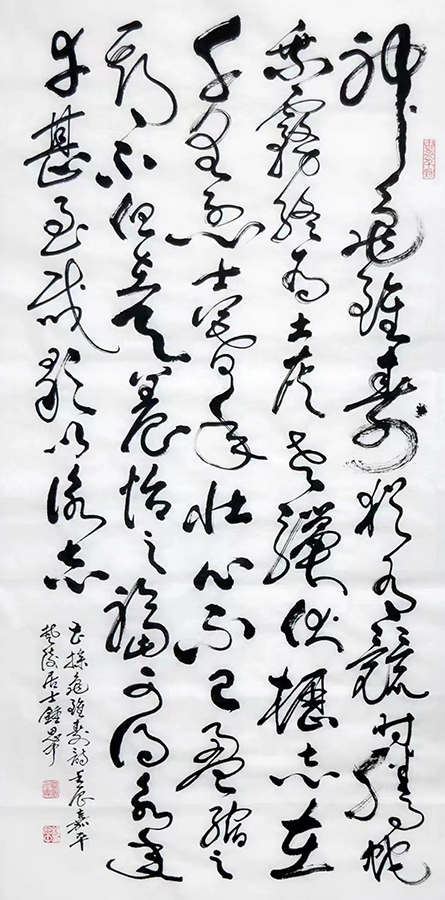 神龜雖壽猶有競時騰蛇
乘霧終為土灰老驥伏櫪志在
千里烈士暮年壯心不已盈縮之
期不但在天養怡之福可得永年
幸甚至哉歌以詠志
書操龜雖壽詩壬辰嘉平
陵居士鍾